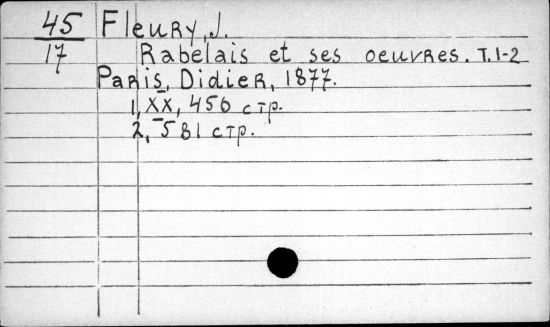 45 Fleury, J.
17 Rabelais et ses oeuvres. T.1-2
Paris, Didier, 1877.
1, XX, 456 стр.
2, 581 стр.